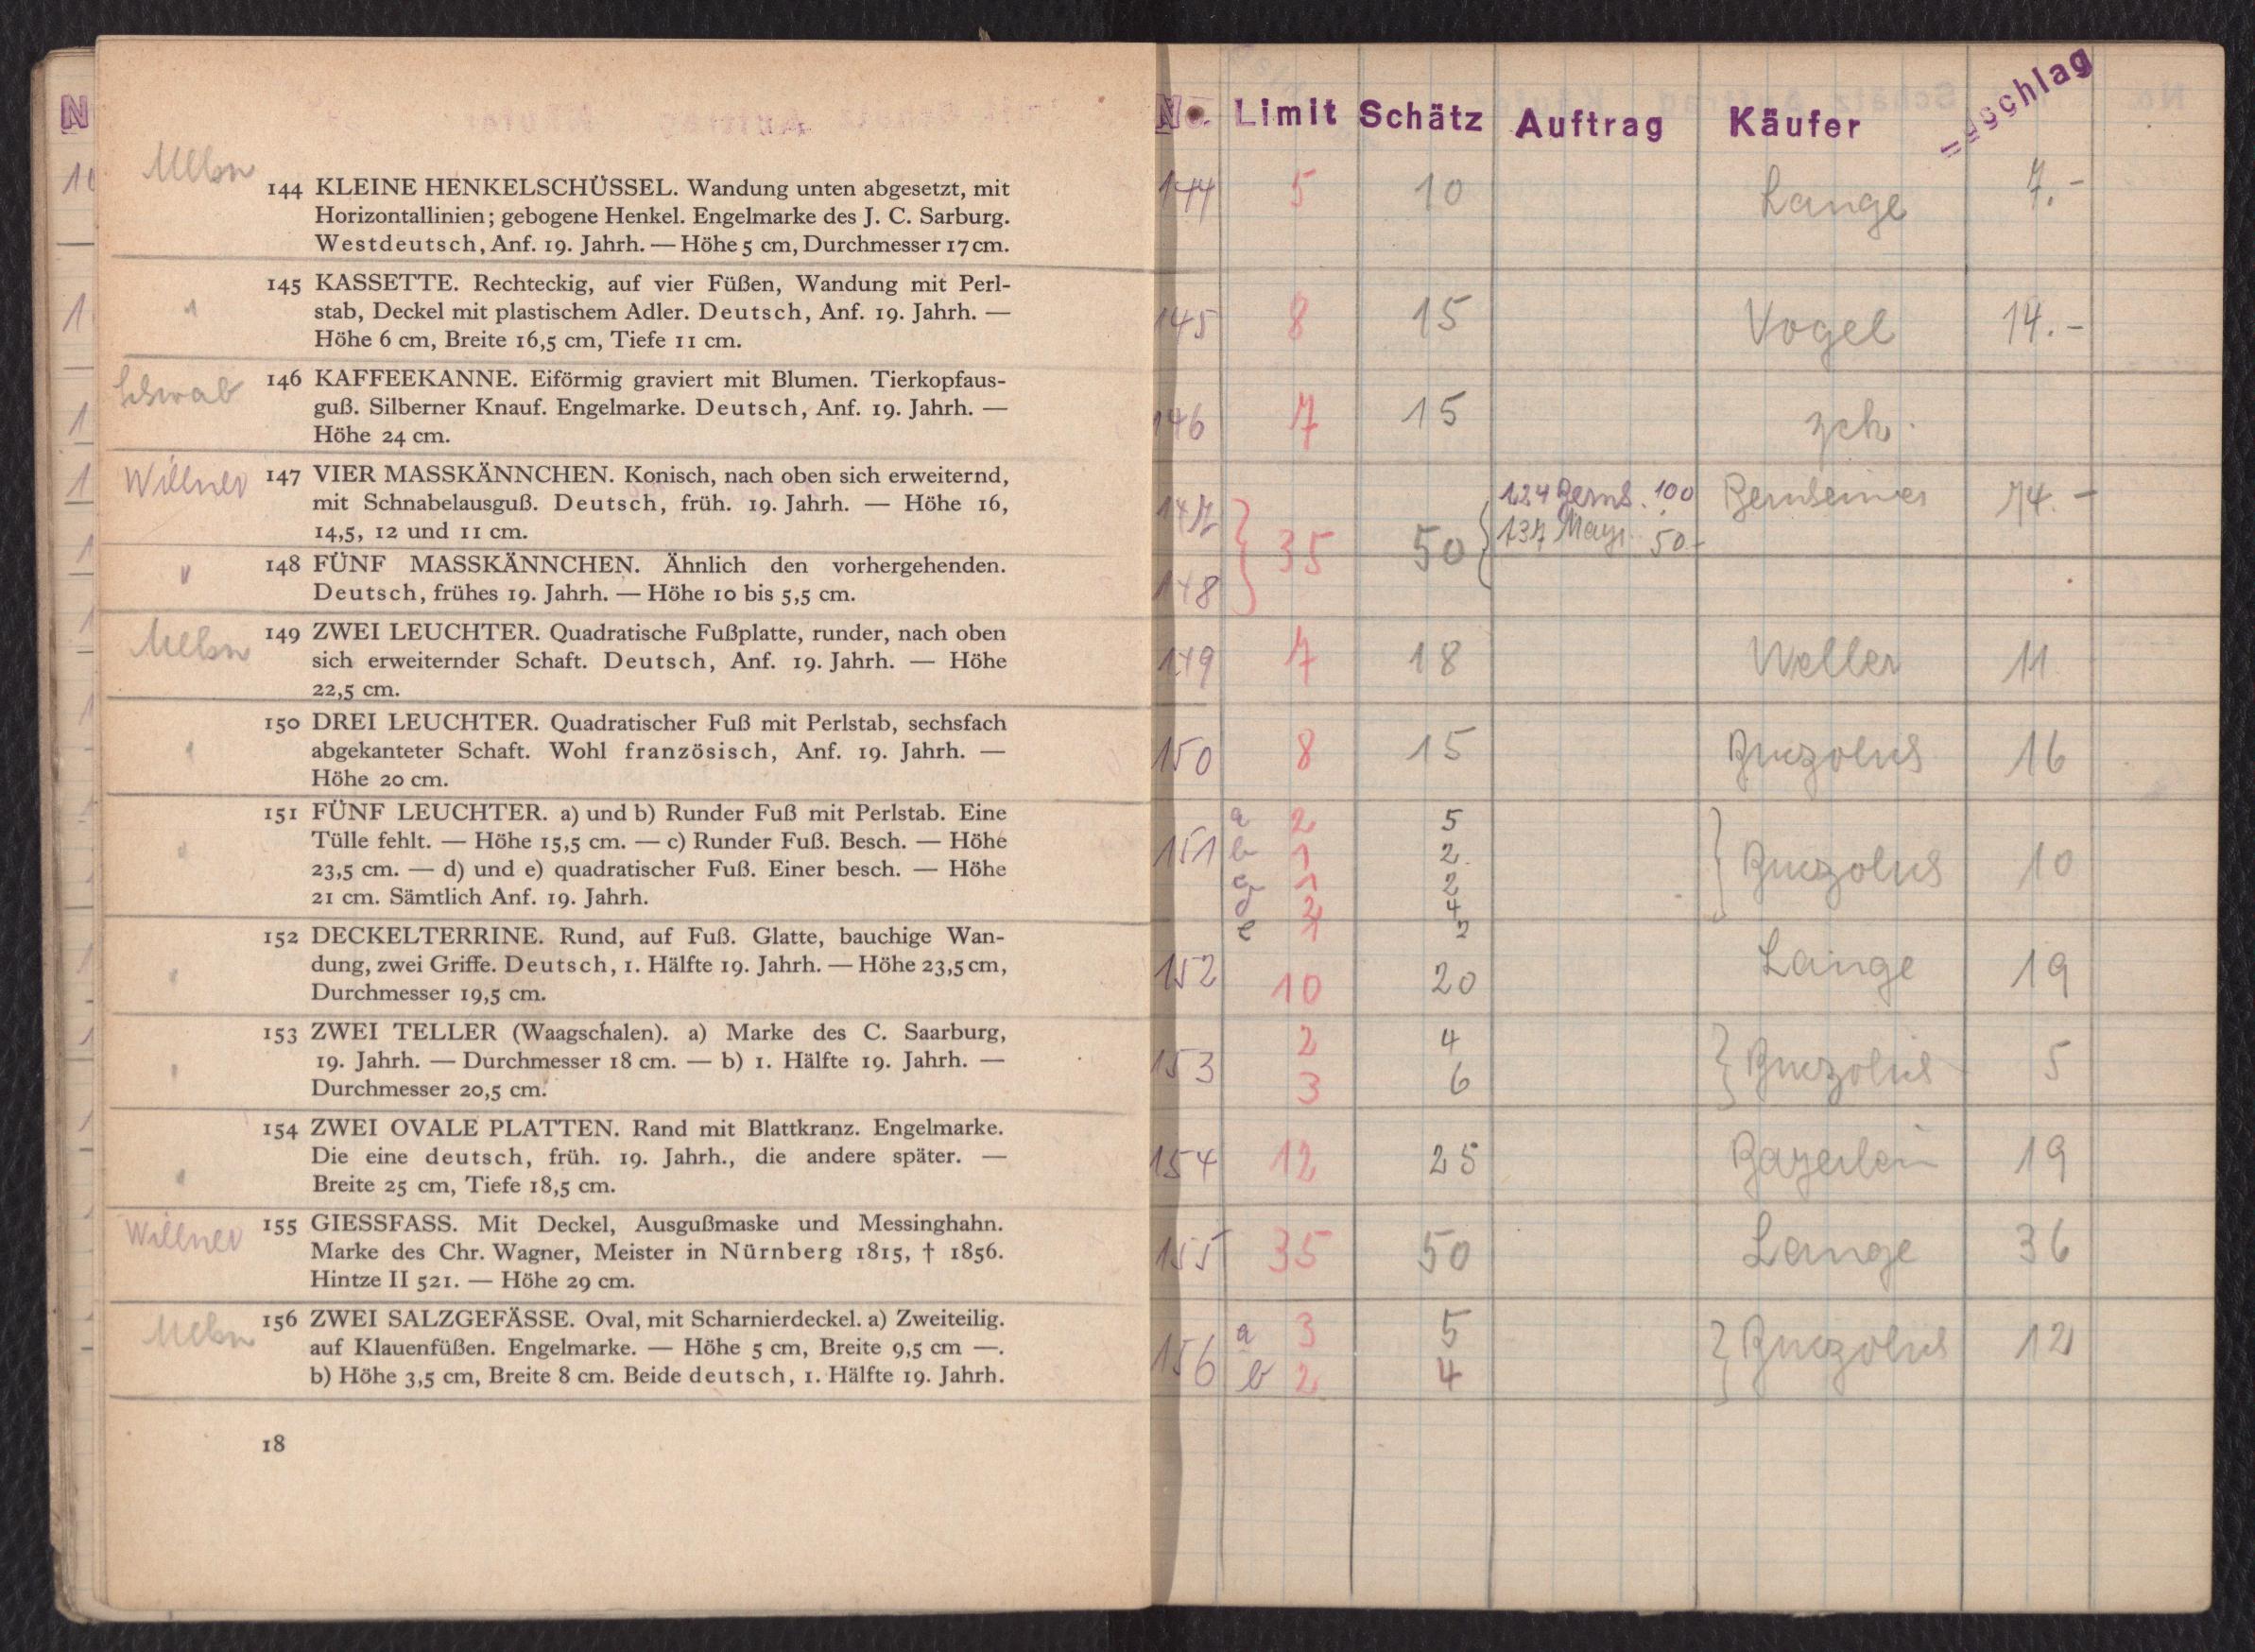 144 KLEINE HENKELSCHÜSSEL. Wandung unten abgesetzt, mit
Horizontallinien; gebogene Henkel. Engelmarke des J. C. Sarburg.
Westdeutsch, Anf. 19. Jahrh. — Höhe 5 cm, Durchmesser 17 cm.
145 KASSETTE. Rechteckig, auf vier Füßen, Wandung mit Perl-
stab, Deckel mit plastischem Adler. Deutsch, Anf. 19. Jahrh. —
Höhe 6 cm, Breite 16,5 cm, Tiefe 11 cm.
Schwab
146 KAFFEEKANNE. Eiförmig graviert mit Blumen. Tierkopfaus-
guß. Silberner Knauf. Engelmarke. Deutsch, Anf. 19. Jahrh. —
Höhe 24 cm.
Willner
147 VIER MASSKÄNNCHEN. Konisch, nach oben sich erweiternd,
mit Schnabelausguß. Deutsch, früh. 19. Jahrh. — Höhe 16,
14,5, 12 und 11 cm.
148 FÜNF MASSKÄNNCHEN. Ähnlich den vorhergehenden.
Deutsch, frühes 19. Jahrh. — Höhe 10 bis 5,5 cm.
149 ZWEI LEUCHTER. Quadratische Fußplatte, runder, nach oben
sich erweiternder Schaft. Deutsch, Anf. 19. Jahrh. — Höhe
22,5 cm.
150 DREI LEUCHTER. Quadratischer Fuß mit Perlstab, sechsfach
abgekanteter Schaft. Wohl französisch, Anf. 19. Jahrh. —
Höhe 20 cm.
151 FÜNF LEUCHTER. a) und b) Runder Fuß mit Perlstab. Eine
Tülle fehlt. — Höhe 15,5 cm. — c) Runder Fuß. Besch. — Höhe
23,5 cm. — d) und e) quadratischer Fuß. Einer besch. — Höhe
21 cm. Sämtlich Anf. 19. Jahrh.
152 DECKELTERRINE. Rund, auf Fuß. Glatte, bauchige Wan-
dung, zwei Griffe. Deutsch, 1. Hälfte 19. Jahrh. — Höhe 23,5 cm,
Durchmesser 19,5 cm.
153 ZWEI TELLER (Waagschalen). a) Marke des C. Saarburg,
19. Jahrh. — Durchmesser 18 cm. — b) 1. Hälfte 19. Jahrh. —
Durchmesser 20,5 cm.
154 ZWEI OVALE PLATTEN. Rand mit Blattkranz. Engelmarke.
Die eine deutsch, früh. 19. Jahrh., die andere später. —
Breite 25 cm, Tiefe 18,5 cm.
Willner
155 GIESSFASS. Mit Deckel, Ausgußmaske und Messinghahn.
Marke des Chr. Wagner, Meister in Nürnberg 1815, † 1856.
Hintze II 521. — Höhe 29 cm.
156 ZWEI SALZGEFÄSSE. Oval, mit Scharnierdeckel. a) Zweiteilig.
auf Klauenfüßen. Engelmarke. — Höhe 5 cm, Breite 9,5 cm —.
b) Höhe 3,5 cm, Breite 8 cm. Beide deutsch, 1. Hälfte 19. Jahrh.
18
No. Limit Schätz Auftrag Käufer
144 5 10 Lange 7.-
145 8 15 Vogel 14.-
146 7 15
147 124 100 Bernheimer 74.-
35 50 137 50.-
148
149 7 18 Weller 11
150 8 15 16
a 2 5
151 b 1 2 10
c 1 2
d 2 4
e 1 2
152 10 20 Lange 19
2 4
153 5
3 6
154 12 25 Bayerlein 19
155 35 50 Lange 36
156 a 3 5 12
b 2 4